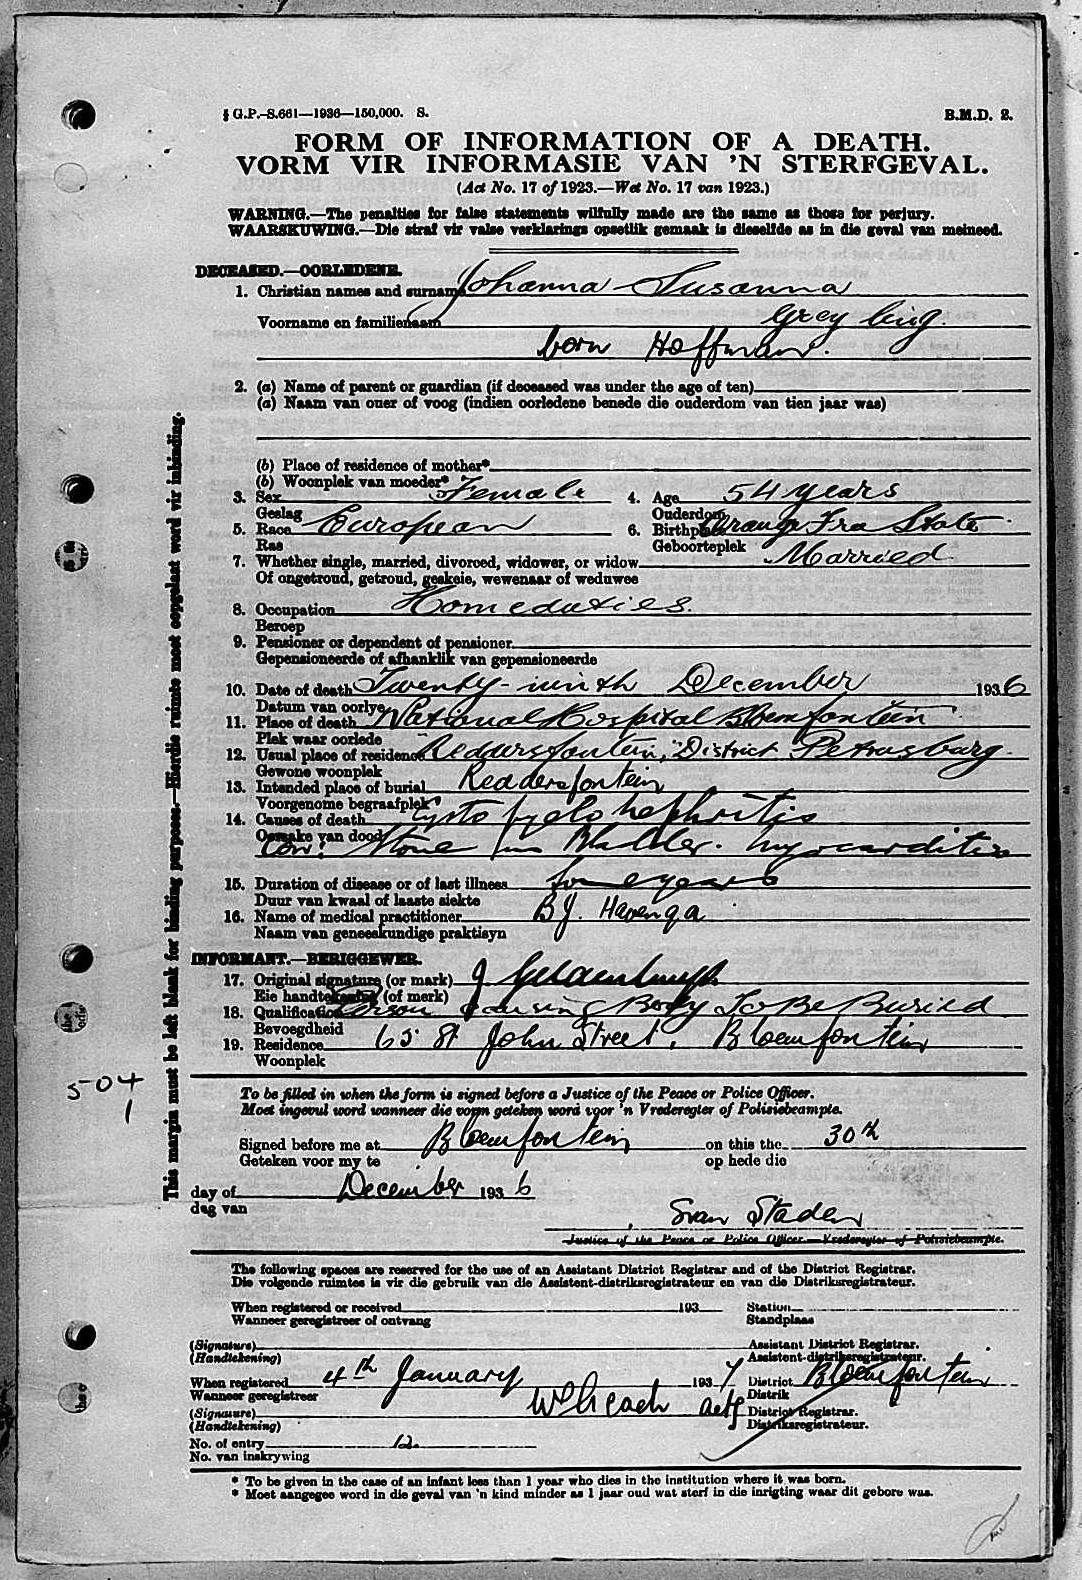 § G.P.-S.661—1936—150,000. S. B.M.D. 2.
FORM OF INFORMATION OF A DEATH.
VORM VIR INFORMASIE VAN 'N STERFGEVAL.
(Act No. 17 of 1923.—Wet No. 17 van 1923.)
WARNING.—The penalties for false statements wilfully made are the same as those for perjury.
WAARSKUWING.—Die straf vir valse verklarings opsetlik gemaak is dieselfde as in die geval van meineed.
DECEASED.—OORLEDENE.
1. Christian names and surname Johanna Susanna
Voorname en familienaam Greyling.
born Hoffman.
2. (a) Name of parent or guardian (if deceased was under the age of ten)
(a) Naam van ouer of voog (indien oorledene benede die ouderdom van tien jaar was)
(b) Place of residence of mother*
(b) Woonplek van moeder*
3. Sex Female 4. Age 54 years
Geslag Ouderdom
5. Race European 6. Birthplace Orange Fra State
Ras Geboorteplek
7. Whether single, married, divorced, widower, or widow Married
Of ongetroud, getroud, geskeie, wewenaar of weduwee
8. Occupation Home duties.
Beroep
9. Pensioner or dependent of pensioner
Gepensioneerde of afhanklik van gepensioneerde
10. Date of death Twenty-ninth December 1936
Datum van oorlye
11. Place of death National Hospital Bloemfontein
Plek waar oorlede
12. Usual place of residence "Reddersfontein," District Petrusburg.
Gewone woonplek
13. Intended place of burial Reddersfontein
Voorgenome begraafplek
14. Causes of death Cysto pyelo nephritis
Oorsake van dood
Con: Stone in Bladder. Myocarditis
15. Duration of disease or of last illness Some years
Duur van kwaal of laaste siekte
16. Name of medical practitioner BJ. Havenga
Naam van geneeskundige praktisyn
INFORMANT.—BERIGGEWER.
17. Original signature (or mark) J
Eie handtekening (of merk)
18. Qualification Person Causing Body To Be Buried
Bevoegdheid
19. Residence 65 St John Street, Bloemfontein
Woonplek
504
1
This margin must be left blank for binding purposes.—Hierdie ruimte moet oopgelaat word vir inbinding.
To be filled in when the form is signed before a Justice of the Peace or Police Officer.
Moet ingevul word wanneer die vorm geteken word voor 'n Vrederegter of Polisiebeampte.
Signed before me at Bloemfontein on this the 30th
Geteken voor my te op hede die
day of December 1936
dag van
Svan Staden
Justice of the Peace or Police Officer—Vrederegter of Polisiebeampte.
The following spaces are reserved for the use of an Assistant District Registrar and of the District Registrar.
Die volgende ruimtes is vir die gebruik van die Assistent-distriksregistrateur en van die Distriksregistrateur.
When registered or received 193 Station
Wanneer geregistreer of ontvang Standplaas
(Signature) Assistant District Registrar.
(Handtekening) Assistent-distriksregistrateur.
When registered 4th January 1937 District Bloemfontein
Wanneer geregistreer Distrik
(Signature) District Registrar.
(Handtekening) Distriksregistrateur.
No. of entry 12
No. van inskrywing
* To be given in the case of an infant less than 1 year who dies in the institution where it was born.
* Moet aangegee word in die geval van 'n kind minder as 1 jaar oud wat sterf in die inrigting waar dit gebore was.